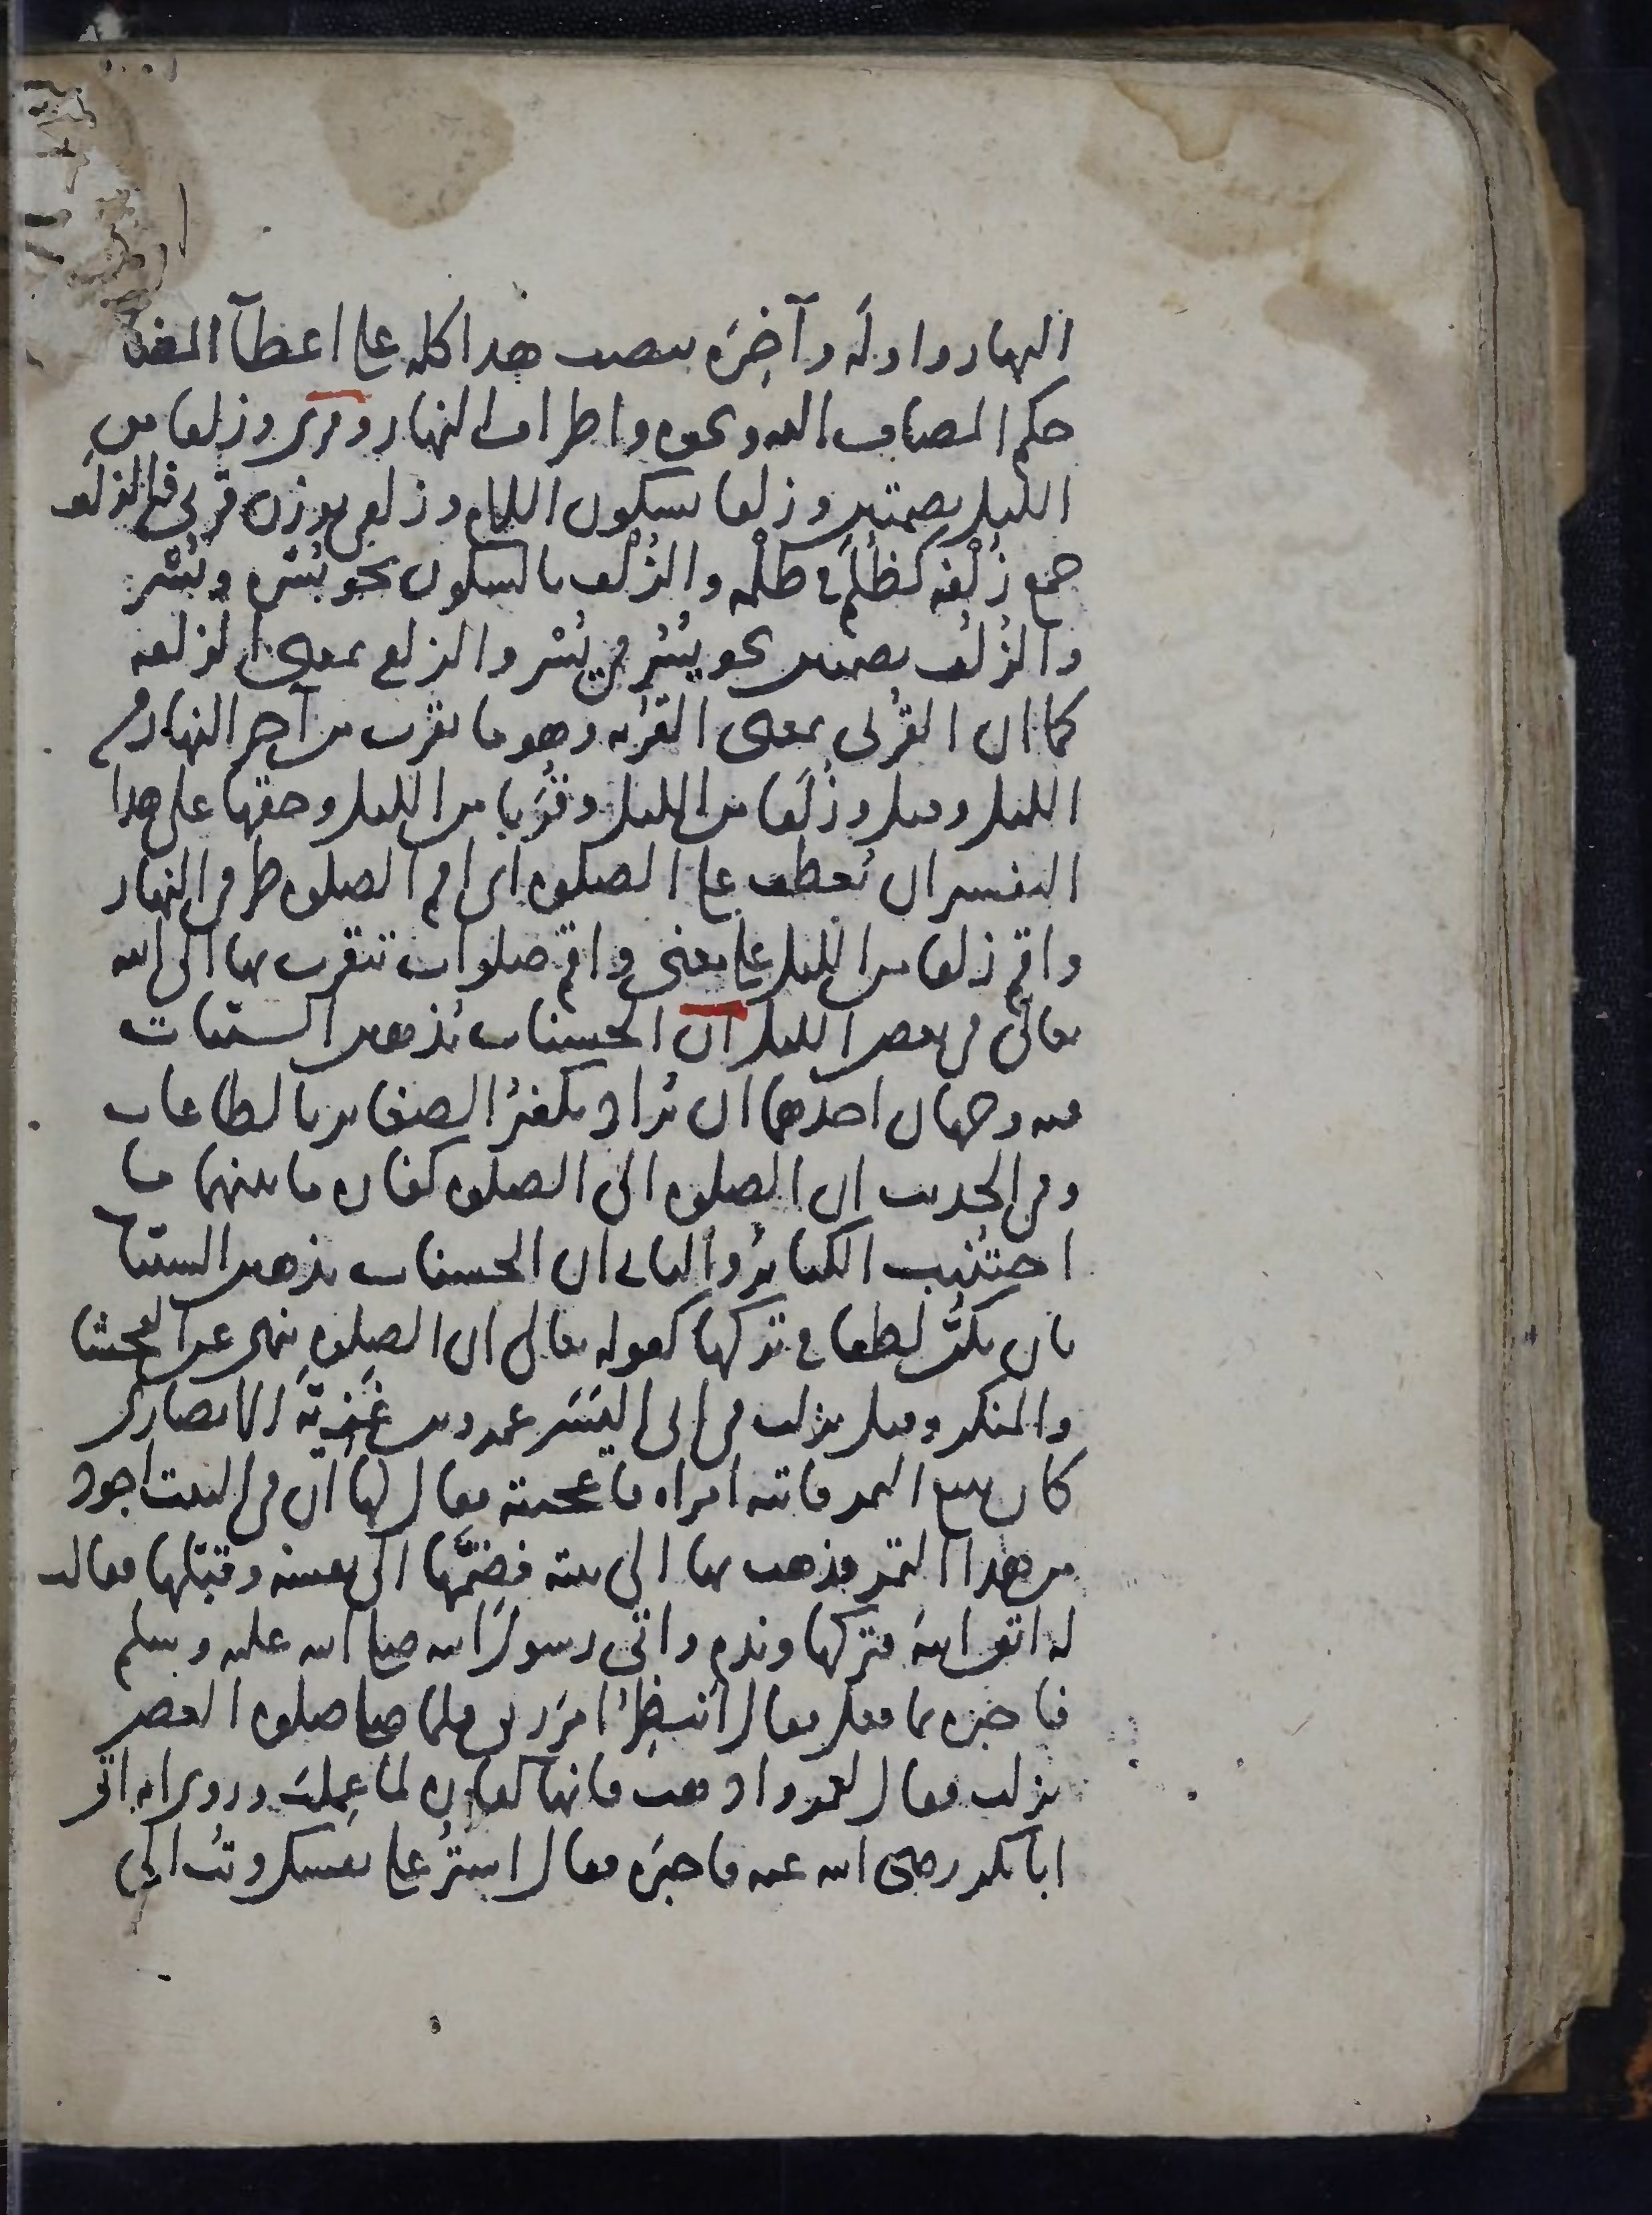 النهار واوله وآخره ينصب هذا كله على اعطآ المضاف
حكم المضاف اليه ونحوه واطراف النهار وقرئ وزلفا من
الليل بضمتين وزلفا بسكون اللام وزلفى بوزن قربى فالزلف
جمع زلفة كظلم في ظلمه والزلف بالسكون نحو بسره وبسر
والزلف بضمتين نحو بسر في بسر والزلفى بمعنى الزلفه
كما ان القربى بمعنى القربه وهو ما يقرب من آخر النهار من
الليل وقيل وزلفا من الليل وقربا من الليل وحقها على هذا
التفسير ان تعطف على الصلوه اى اقم الصلوه طرفي النهار
واقم زلفا من الليل على معنى واقم صلوات تتقرب بها الى الله
تعالى في بعض الليل ان الحسنات يذهبن السيئات
فيه وجهان احدهما ان يراد تكفير الصغاير بالطاعات
وفي الحديث ان الصلوه الى الصلوه كفاره ما بينهما ما
اجتنبت الكبائر والثاني ان الحسنات يذهبن السيئات
بان يكن لطفا في تركها كقوله تعالى ان الصلوه تنهى عن الفحشا
والمنكر وقيل نزلت في ابى اليسر عمرو بن غزية الانصارى
كان يبيع التمر فاتته امراه فاعجبته فقال لها ان في البيت اجود
من هذا التمر فذهب بها الى بيته فضمها الى نفسه وقبلها فقالت
له اتق الله فتركها وندم واتى رسول الله صلى الله عليه وسلم
فاخبره بما فعل فقال انتظر امر ربى فلما صلى صلوه العصر
نزلت فقال نعم واذهب فانها كفاره لما عملت وروى انه اتى
ابا بكر رضى الله عنه فاخبره فقال استر على نفسك وتب الى